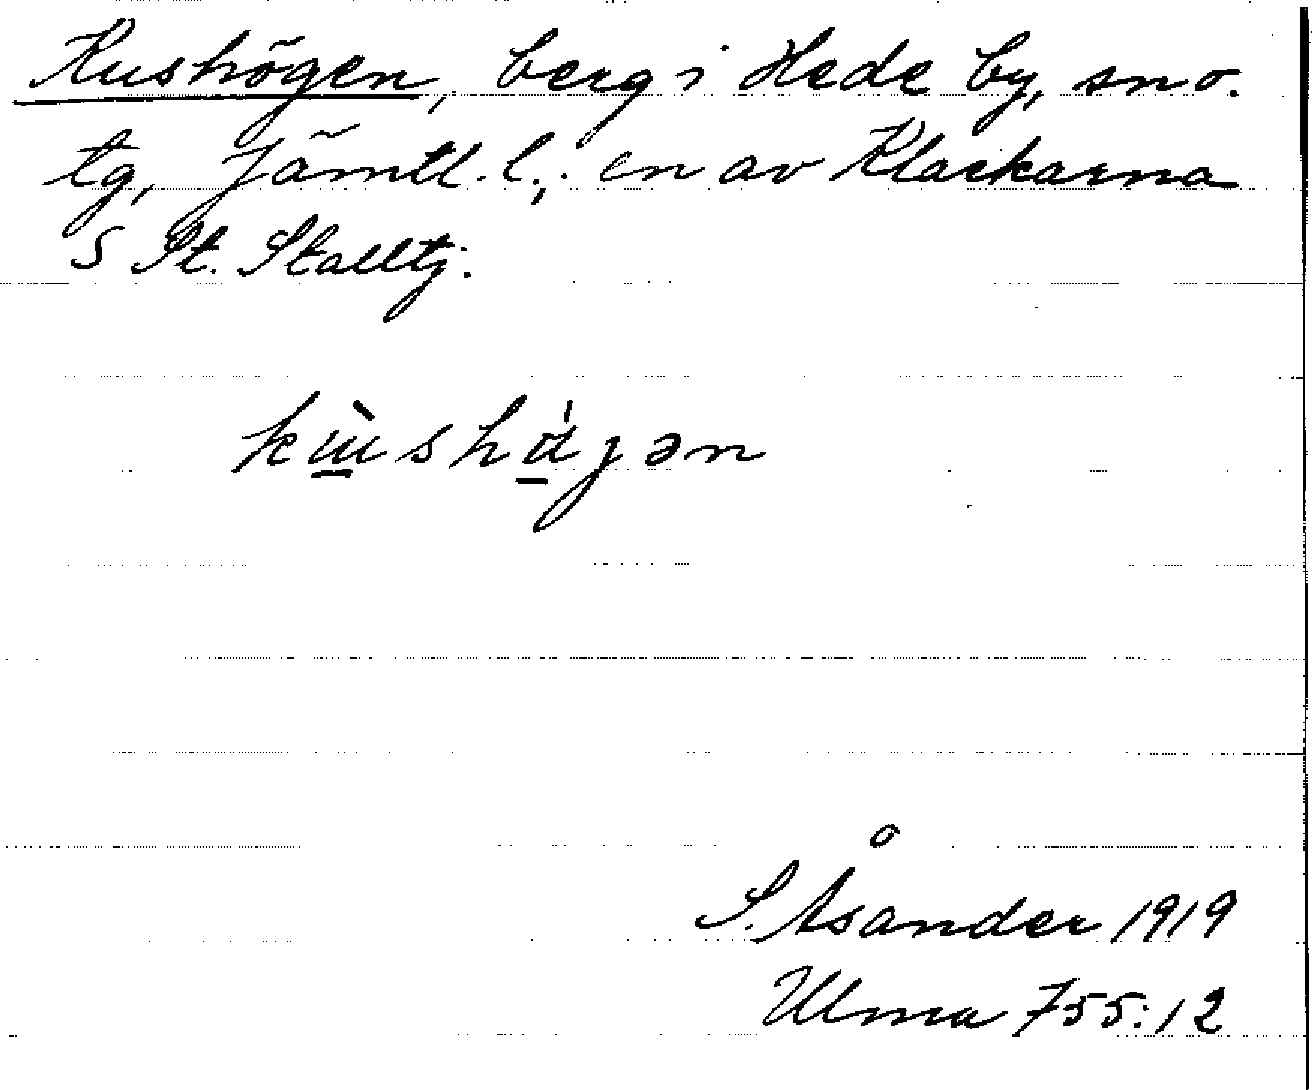 Kushögen, berg i Hede by, sn o.
tg, Jämtl. l.; en av Klackarna
S St. Stalltj.
kɯ̀shɑ́jən
S. Åsander 1919
Ulma 755:12